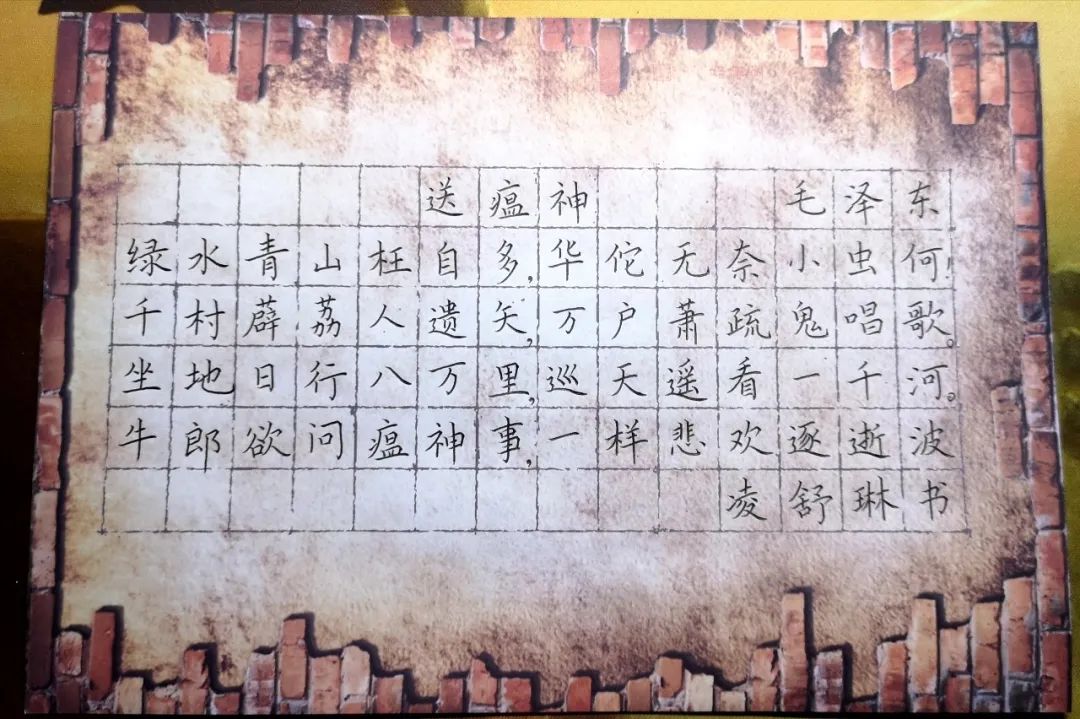 送瘟神 毛泽东
绿水青山枉自多,华佗无奈小虫何!
千村薜荔人遗矢,万户萧疏鬼唱歌。
坐地日行八万里,巡天遥看一千河。
牛郎欲问瘟神事,一样悲欢逐逝波
凌舒琳书